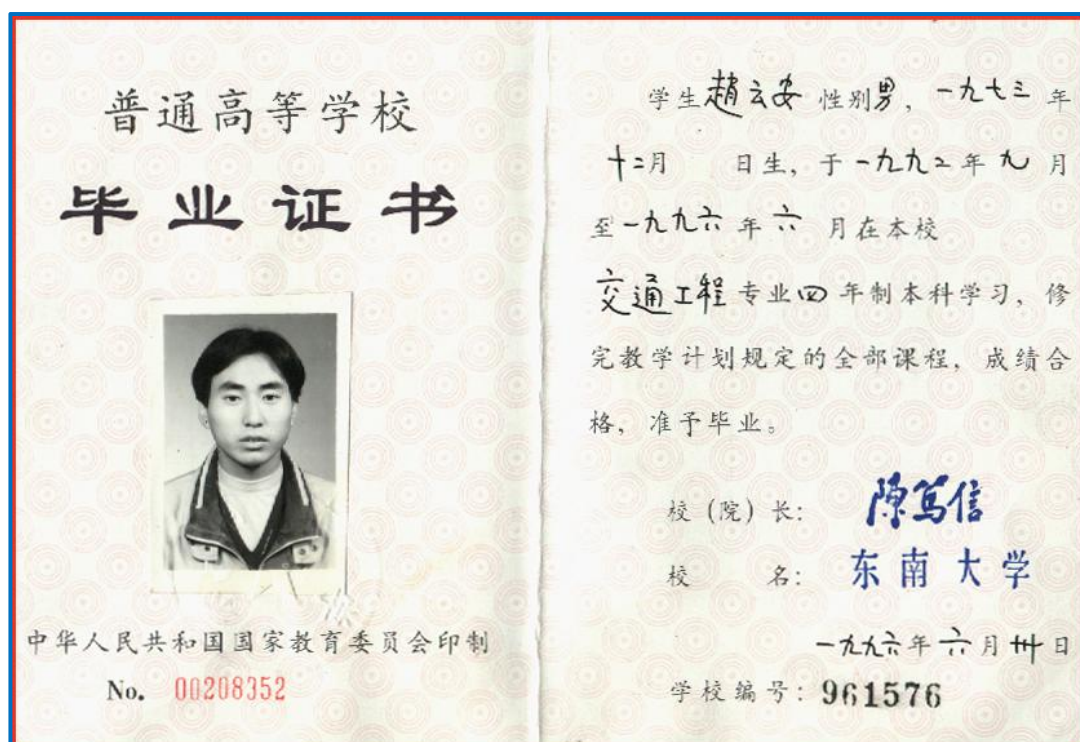 普通高等学校
毕业证书
中华人民共和国国家教育委员会印制
No. 00208352
学生趙云安 性别男，一九七三 年
十二月 日生，于一九九二年九月
至一九九六年六 月在本校
交通工程专业四年制本科学习，修
完教学计划规定的全部课程，成绩合
格，准予毕业。
校（院）长： 陈笃信
校 名： 东南大学
一九九六年六月卅日
学校编号：961576